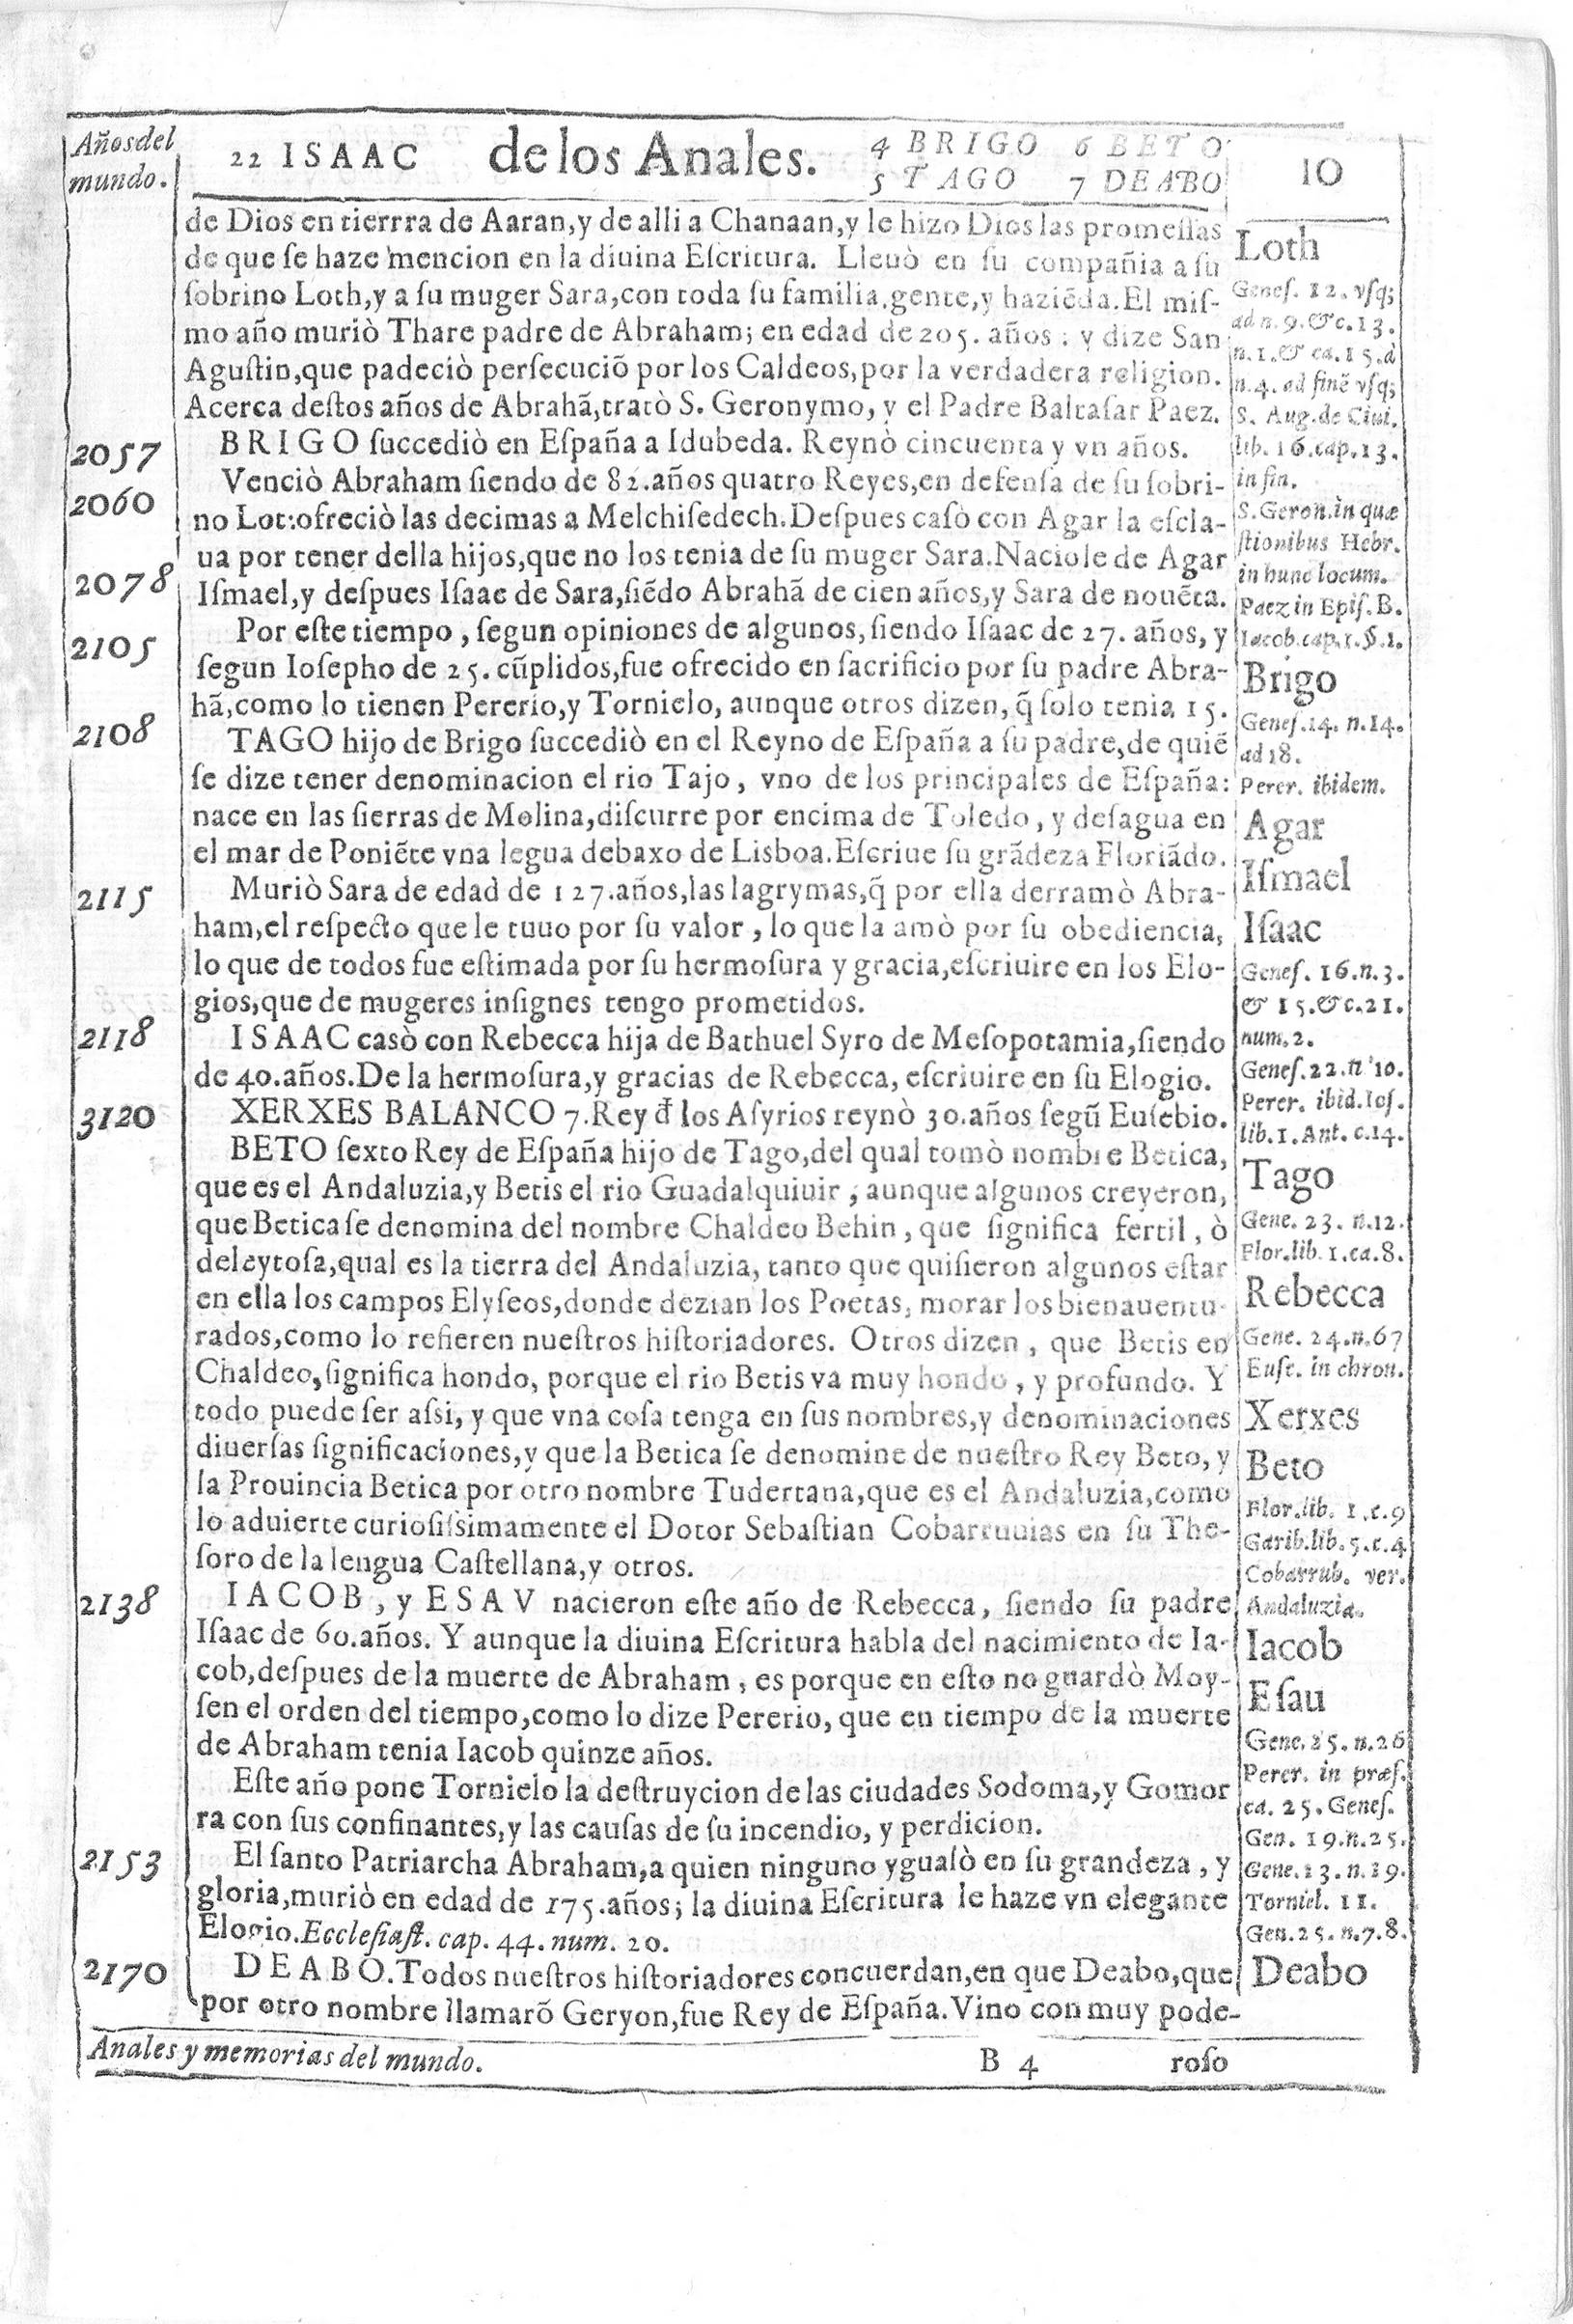 Años del
mundo.
22 ISAAC de los Anales. 4 BRIGO 6 BETO
5 TAGO 7 DEABO
10
de Dios en tierrra de Aaran,y de alli a Chanaan,y le hizo Dios las promeſſas
de que ſe haze mencion en la diuina Eſcritura. Lleuò en ſu compañia a ſu
ſobrino Loth,y a ſu muger Sara,con toda ſu familia.gente,y haziẽda.El miſ-
mo año muriò Thare padre de Abraham; en edad de 205. años: y dize San
Aguſtin,que padeciò perſecuciõ por los Caldeos,por la verdadera religion.
Acerca deſtos años de Abrahã,tratò S. Geronymo, y el Padre Baltaſar Paez.
2057 BRIGO ſuccediò en Eſpaña a Idubeda. Reynò cincuenta y vn años.
2060 Venciò Abraham ſiendo de 82.años quatro Reyes,en defenſa de ſu ſobri-
no Lot:ofreciò las decimas a Melchiſedech.Deſpues caſò con Agar la eſcla-
ua por tener della hijos,que no los tenia de ſu muger Sara.Naciole de Agar
2078 Iſmael,y deſpues Iſaac de Sara,ſiẽdo Abrahã de cien años,y Sara de nouẽta.
2105 Por eſte tiempo, ſegun opiniones de algunos, ſiendo Iſaac de 27. años, y
ſegun Ioſepho de 25. cũplidos,fue ofrecido en ſacrificio por ſu padre Abra-
hã,como lo tienen Pererio,y Tornielo, aunque otros dizen, q̃ ſolo tenia 15.
2108 TAGO hijo de Brigo ſuccediò en el Reyno de Eſpaña a ſu padre,de quiẽ
ſe dize tener denominacion el rio Tajo, vno de los principales de Eſpaña:
nace en las ſierras de Molina,diſcurre por encima de Toledo, y deſagua en
el mar de Poniẽte vna legua debaxo de Lisboa.Eſcriue ſu grãdeza Floriãdo.
2115 Muriò Sara de edad de 127.años,las lagrymas,q̃ por ella derramò Abra-
ham,el reſpecto que le tuuo por ſu valor, lo que la amò por ſu obediencia,
lo que de todos fue eſtimada por ſu hermoſura y gracia,eſcriuire en los Elo-
gios,que de mugeres inſignes tengo prometidos.
2118 ISAAC casò con Rebecca hija de Bathuel Syro de Meſopotamia,ſiendo
de 40.años.De la hermoſura,y gracias de Rebecca, eſcriuire en ſu Elogio.
3120 XERXES BALANCO 7.Rey đ los Aſyrios reynò 30.años ſegũ Euſebio.
BETO ſexto Rey de Eſpaña hijo de Tago,del qual tomò nombre Betica,
que es el Andaluzia,y Betis el rio Guadalquiuir, aunque algunos creyeron,
que Betica ſe denomina del nombre Chaldeo Behin, que ſignifica fertil, ò
deleytoſa,qual es la tierra del Andaluzia, tanto que quiſieron algunos eſtar
en ella los campos Elyſeos,donde dezian los Poetas, morar los bienauentu-
rados,como lo refieren nueſtros hiſtoriadores. Otros dizen, que Betis en
Chaldeo,ſignifica hondo, porque el rio Betis va muy hondo, y profundo. Y
todo puede ſer aſsi, y que vna coſa tenga en ſus nombres,y denominaciones
diuerſas ſignificaciones,y que la Betica ſe denomine de nueſtro Rey Beto, y
la Prouincia Betica por otro nombre Tudertana,que es el Andaluzia,como
lo aduierte curioſiſsimamente el Dotor Sebaſtian Cobarruuias en ſu The-
ſoro de la lengua Caſtellana,y otros.
2138 IACOB, y ESAV nacieron eſte año de Rebecca, ſiendo ſu padre
Iſaac de 60.años. Y aunque la diuina Eſcritura habla del nacimiento de Ia-
cob,deſpues de la muerte de Abraham, es porque en eſto no guardò Moy-
ſen el orden del tiempo,como lo dize Pererio, que en tiempo de la muerte
de Abraham tenia Iacob quinze años.
Eſte año pone Tornielo la deſtruycion de las ciudades Sodoma,y Gomor
ra con ſus confinantes,y las cauſas de ſu incendio, y perdicion.
2153 El ſanto Patriarcha Abraham,a quien ninguno ygualò en ſu grandeza, y
gloria,muriò en edad de 175.años; la diuina Eſcritura le haze vn elegante
Elogio.Eccleſiaſt. cap. 44. num. 20.
2170 DEABO.Todos nueſtros hiſtoriadores concuerdan,en que Deabo,que
por otro nombre llamarõ Geryon,fue Rey de Eſpaña.Vino con muy pode-
Loth
Geneſ. 12. vſq;
ad n. 9.& c. 13.
n. 1.& ca. 15. à
n. 4. ad finẽ vſq;
S. Aug. de Ciui.
lib. 16.cap.13.
in fin.
S.Geron.in quæ
ſtionibus Hebr.
in hunc locum.
Paez in Epiſ. B.
Iacob.cap.1.§.1.
Brigo
Geneſ.14. n.14.
ad 18.
Perer. ibidem.
Agar
Iſmael
Iſaac
Geneſ. 16.n.3.
& 15.& c.21.
num.2.
Geneſ.22.n 10.
Perer. ibid.Ioſ.
lib.1.Ant. c.14.
Tago
Gene. 23. n.12.
Flor.lib. 1.ca.8.
Rebecca
Gene. 24.n.67
Euſe. in chron.
Xerxes
Beto
Flor.lib. 1.c.9
Garib.lib.5.c.4
Cobarrub. ver.
Andaluzia.
Iacob
Eſau
Gene.25.n.26
Perer. in præf.
ca. 25.Geneſ.
Gen. 19.n.25.
Gene.13.n.19.
Torniel. 11.
Gen.25.n.7.8.
Deabo
Anales y memorias del mundo. B 4 roſo